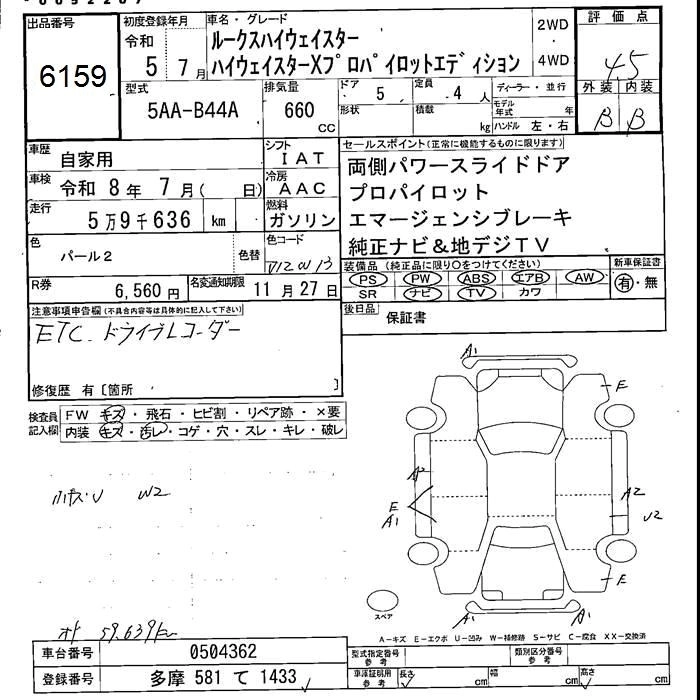 出品番号
6159
初度登録年月
令和
5 7月
車名・グレード
ルークスハイウェイスター
ハイウェイスターXプロパイロットエディション
2WD
・
4WD
評価点
4.5
外装 内装
B B
型式
5AA-B44A
排気量
660
cc
ドア 5
形状
定員 4 人
積載 kg
ディーラー・並行
モデル年式 年
ハンドル 左・右
車歴
自家用
シフト
IAT
車検
令和 8年 7月( 日)
冷房
AAC
走行
5万9千636 km
燃料
ガソリン
色
パール2
色替
色コード
R券
6,560円
名変通知期限
11月27日
セールスポイント(正常に機能するものに限ります)
両側パワースライドドア
プロパイロット
エマージェンシブレーキ
純正ナビ&地デジTV
装備品(純正品に限り○をつけてください)
PS PW ABS エアB AW
SR ナビ TV カワ
新車保証書
有・無
後日品
保証書
注意事項申告欄(不具合内容等は具体的に記入して下さい)
ETC. ドライブレコーダー
修復歴 有〔箇所 〕
検査員記入欄
FW キズ・飛石・ヒビ割・リペア跡・×要
内装 キズ・汚レ・コゲ・穴・スレ・キレ・破レ
W2
A1
E
E
A1
A2
E
A1 A1
スペア
A-キズ E-エクボ U-凹み W-補修跡 S-サビ C-腐食 XX-交換済
59.639km
車台番号
0504362
登録番号
多摩 581 て 1433
型式指定番号
参考
類別区分番号
参考
車庫証明用
参考
長さ cm
幅 cm
高さ cm